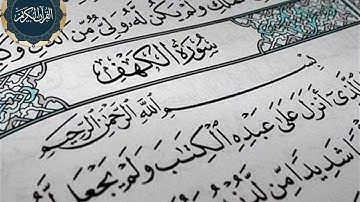 القرآن الكريم
ولم يكن له ولي من
سورة الكهف
بسم الله الرحمن الرحيم
الذي أنزل على عبده الكتاب ولم يجعل
شديدا من